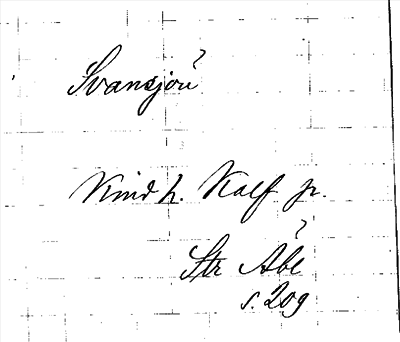 Svansjön
Kind h. Kalf sn.
Str Åbl
s. 209